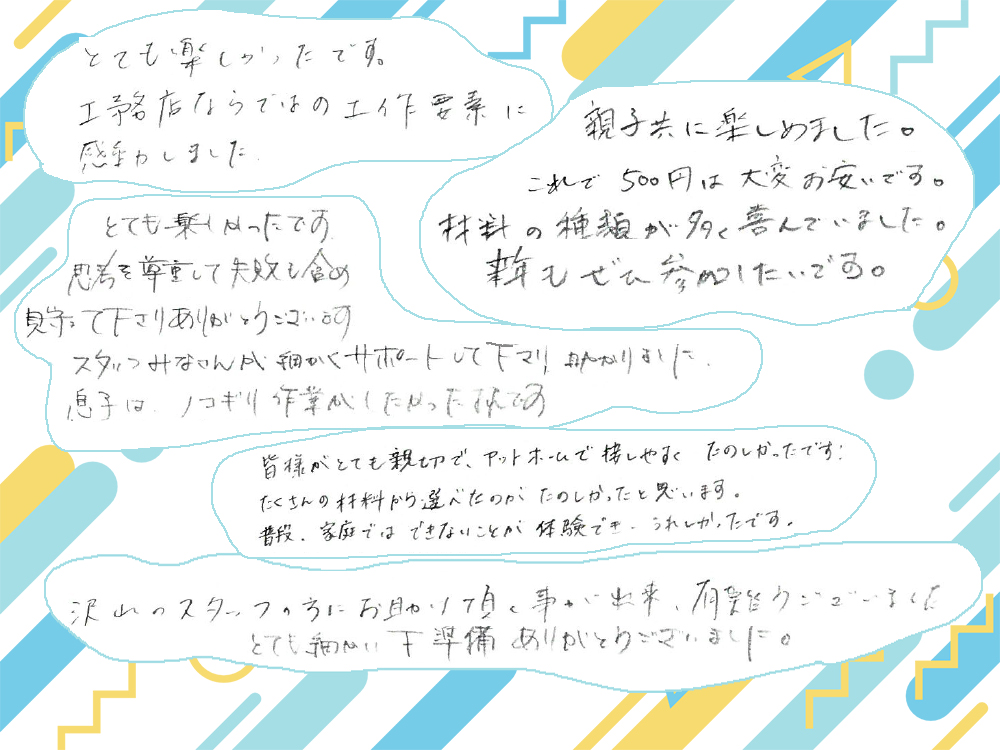 とても楽しかったです。
工務店ならではの工作要素に
感動しました.
親子共に楽しめました。
これで 500円は 大変 お安いです。
材料の種類が多く喜んでいました。
来年もぜひ参加したいです。
とても楽しかったです
思考を尊重して失敗も含め
見守って下さりありがとうございます
スタッフみなさんが細かくサポートして下さり助かりました.
息子は、ノコギリ作業がしたかったようです
皆様がとても親切で、アットホームで接しやすく たのしかったです!
たくさんの材料から選べたのが たのしかったと思います。
普段、家庭では できないことが 体験でき、うれしかったです。
沢山のスタッフの方にお助け頂く事が出来、有難うございました
とても細かい下準備ありがとうございました。